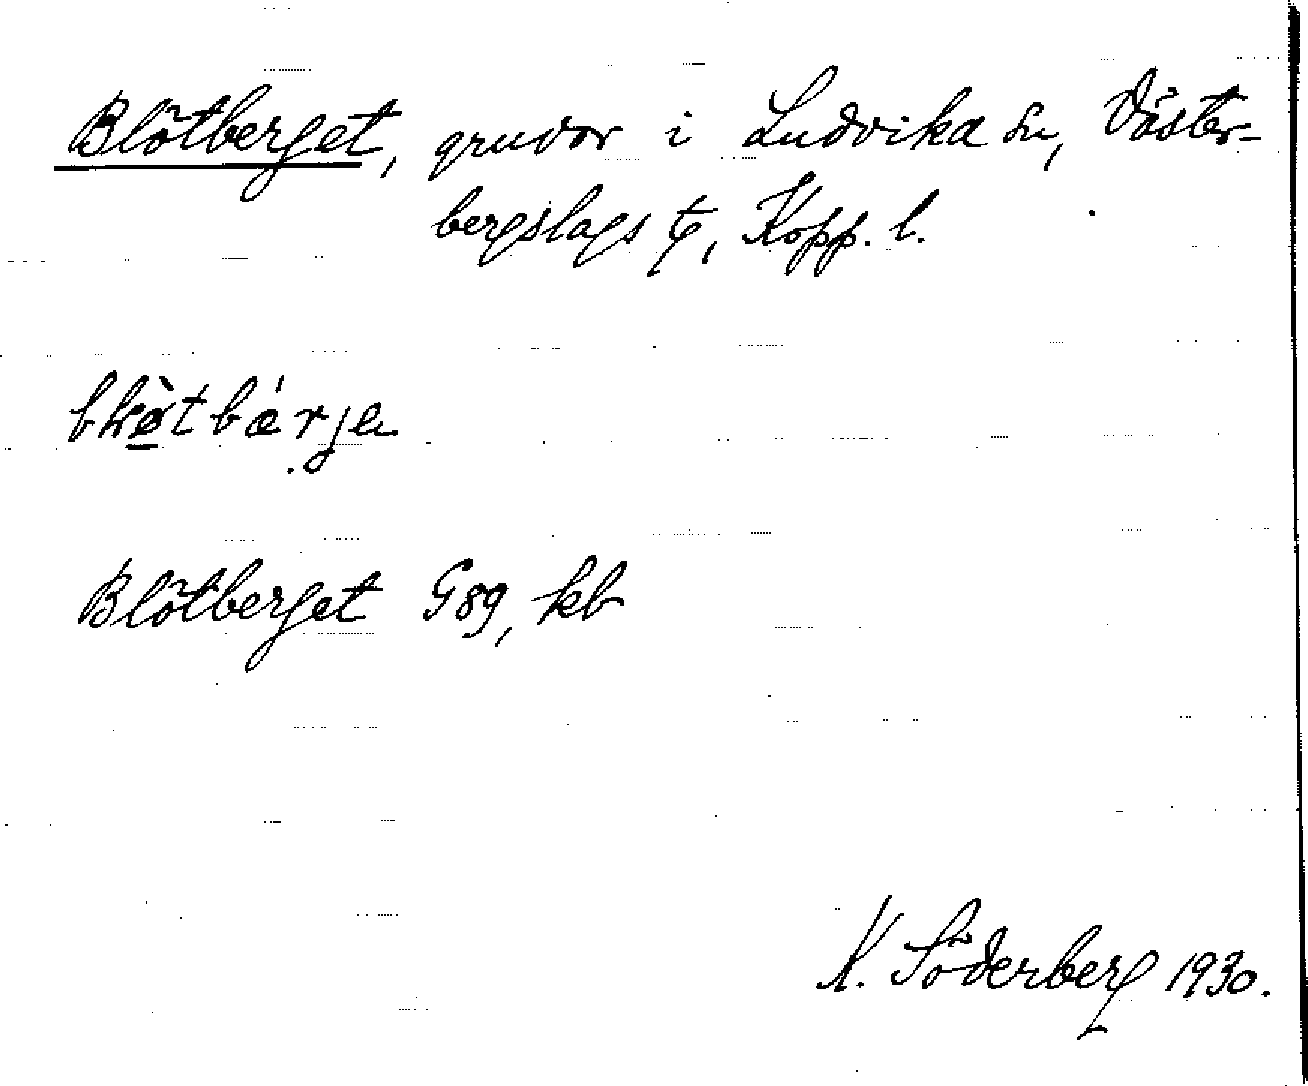 Blötberget, gruvor i Ludvika sn, Väster-
bergslags tg, Kopp. l.
Blötberget G89, kb
K. Söderberg 1930.